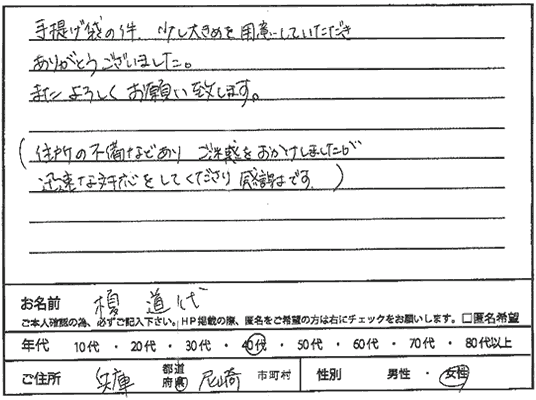 手提げ袋の件、少し大きめを用意していただき
ありがとうございました。
また よろしく お願い致します。
(住所の不備などあり ご迷惑をおかけしましたが
迅速な対応をしてくださり 感謝です。)
お名前 榎 道代
ご本人確認の為、必ずご記入下さい。HP掲載の際、匿名をご希望の方は右にチェックをお願いします。 □匿名希望
年代 10代 ・ 20代 ・ 30代 ・ 40代 ・ 50代 ・ 60代 ・ 70代 ・ 80代以上
ご住所 兵庫 都道府県 尼崎 市町村 性別 男性 ・ 女性